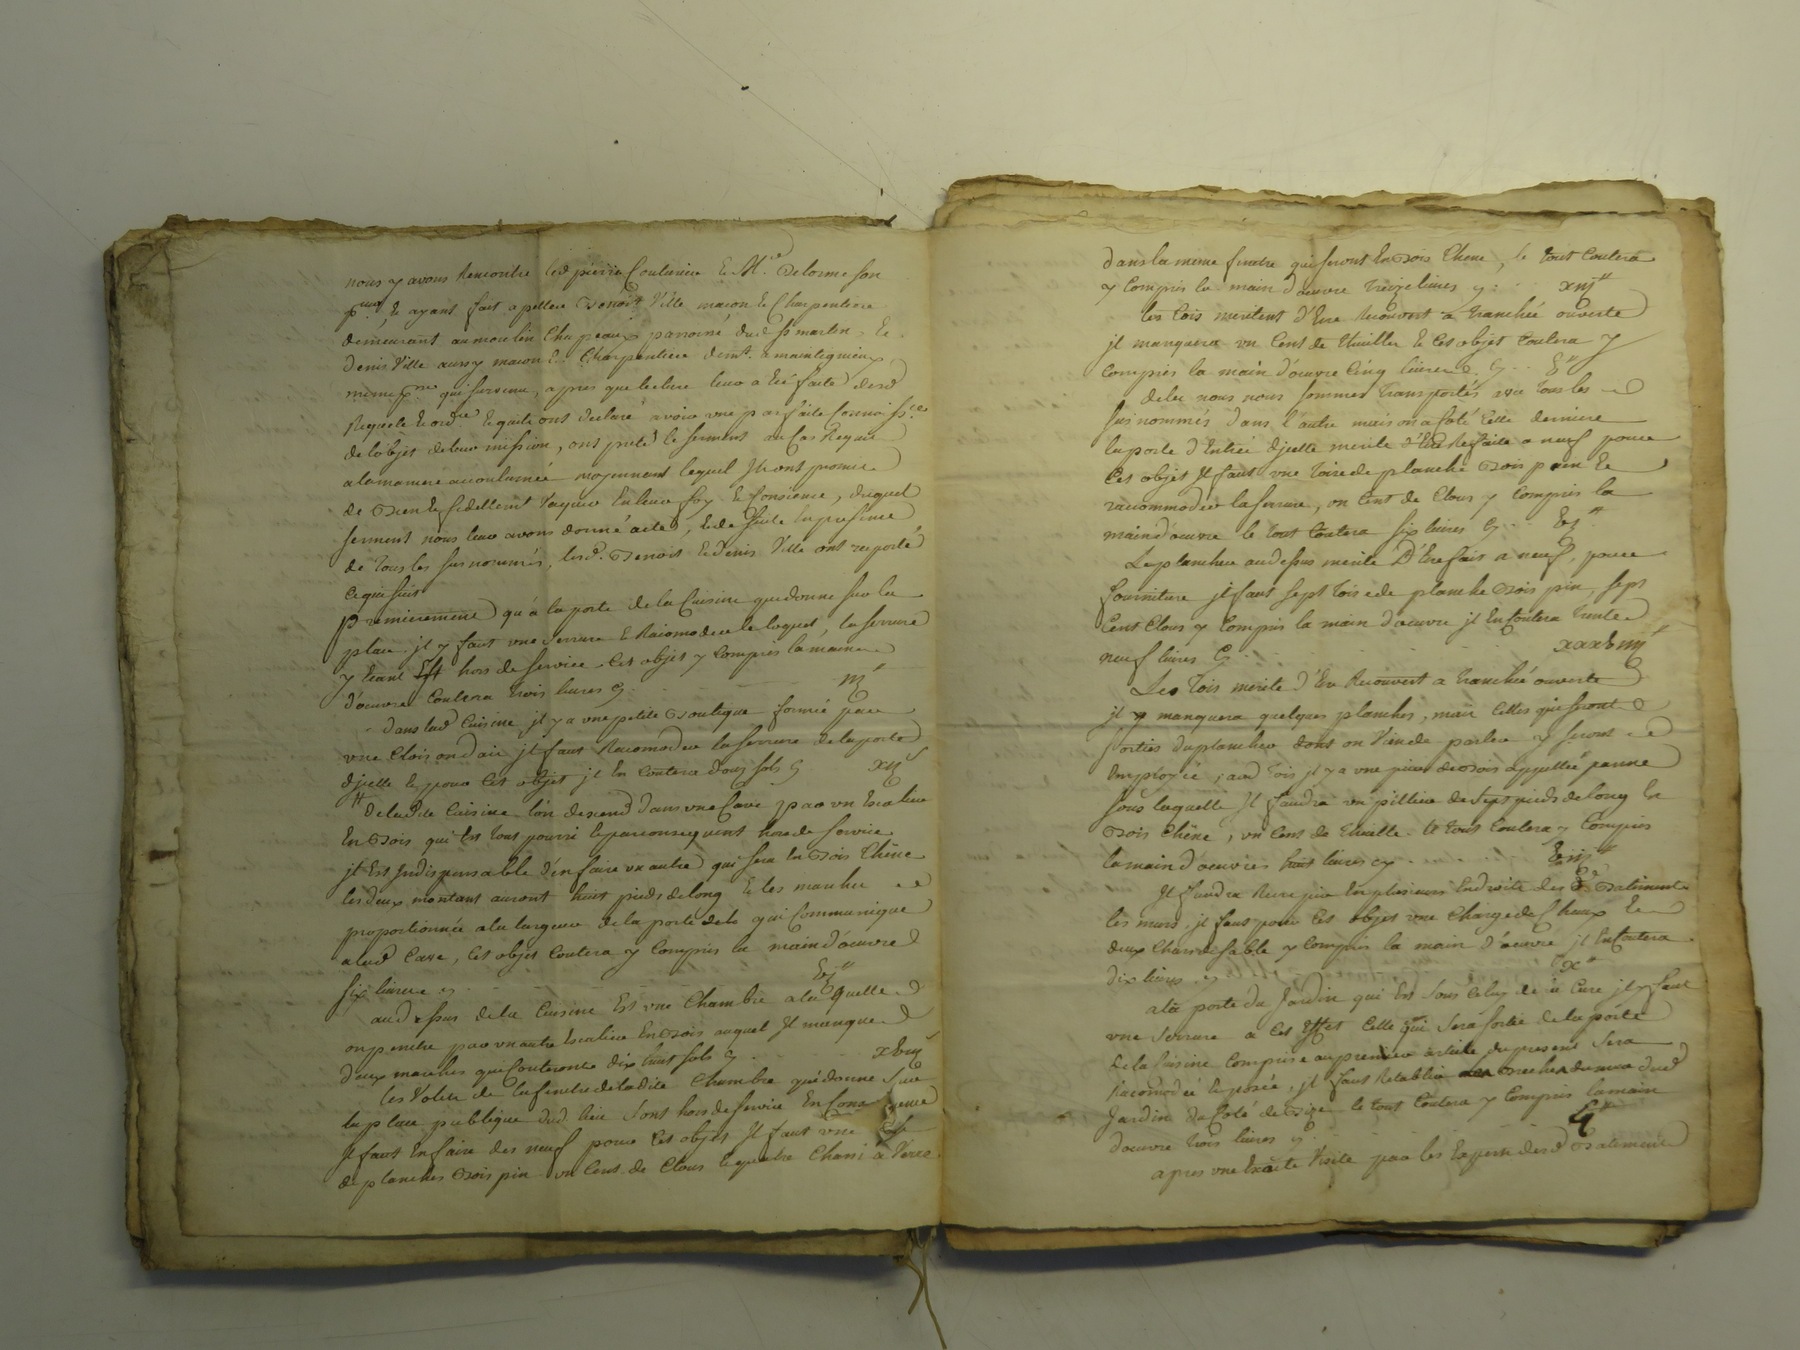 nous y avons Rencontre led pierre Couturier & M.e Delorme son
p.eur, & ayant fait apellere Benoit Ville macon & Charpentiere
demeurant au moulin Chapeaux parroine dud St martin, &
Denis Ville aussy macon & Charpentiere dem.t a
meme p.sse qui survenu, apres que lecture leur a Eté faite desd
Requete & ord.ce & quils ont declaré avoir une parfaite Connoiss.ce
de lobjet de leur mission, ont preté le serment au Cas Requis
a la maniere accoutumée moyennant lequel Ils ont promis
de Bien & fidellement Vaquer En leur foy & Consience, duquel
serment nous leur avons donné acte, & de suite En presence
de tous les sus nommés, lesd. Benoit & Denis Ville ont raporté
Ce qui suit
premierement qu'a la porte de la Cuisine que donne sur la
place il y faut une serrure & Racomodere le loquet, la serrure
y Etant hors de service Cet objet y Compris la main
d'œuvre Coutera trois livres Cy iij#
Dans lad Cuisine il y a une petite Boutique formée par
une Cloison d'ais il faut Racomoder la serrure de la porte
d'icelle & pour Cet objet il En Coutera douze sols Cy xij s
De ladite Cuisine l'on descend dans une Cave par un Escalier
En Bois qui Est tout pourri & par consequent hors de service
il Est Indispensable d'en faire un autre qui sera En Bois Chêne
les deux montant auront huit pieds de long & les marches
proportionnée a la largeur de la porte qui Communique
a lad Cave, Cet objet Coutera y Compris la main d'œuvre
six livres Cy vj#
au dessus de la Cuisine Est une Chambre a la quelle
on penetre par un autre Escalier En Bois auquel Il manque
deux marches qui Couteront dix huit sols Cy xviij s
les Volets de la fenetre de ladite Chambre que donne sur
la place publique dud lieu sont hors de service En Consequence
Il faut En faire des neuf pour Cet objet Il faut une
de planches Bois pin un Cent de Clous & quatre Chassi a Verre
dans la meme fenetre qui seront En Bois Chene, le tout Coutera
y Compris la main d'œuvre treize livres Cy: xiij#
les tois meritent d'Etre Recouvert a tranchée ouverte
il manquera un Cent de thuilles & Cet objet Coutera y
Compris la main d'œuvre Cinq livres Cy v#
de la nous nous sommes transportés avec tous les
sus nommés dans l'autre maison a Coté Cette derniere
la porte d'Entrée d'icelle merite d'Etre Refaite a neuf pour
Cet objet Il faut une toise de planche Bois pin &
racommoder la serrure, un Cent de Clous y Compris la
main d'œuvre le tout Coutera six livres Cy vj#
Le plancher au dessus merite D'Etre fait a neuf, pour
fourniture il faut sept toise de planche Bois pin, sept
Cent Clous y Compris la main d'œuvre il En Coutera trente
neuf livres Cy xxxviiij#
Les tois merite d'Etre Recouvert a tranchée ouverte
il y manquera quelques planches, mais Celles qui seront
sorties du plancher dont on Vien de parler y seront
Employée; aud tois il y a une piece de Bois appellée panne
sous laquelle Il faudra un pillier de sept pieds de long En
Bois Chêne, un Cent de thuille, le tout Coutera y Compris
la main d'œuvres huit livres Cy viij#
Il faudra Recrepir En plusieurs Endroits des d. Batiments
les murs, il faut pour Cet objet une Charge de Chaux &
deux Chars de sable y Compris la main d'œuvre il En Coutera
dix livres Cy x#
a la porte du Jardin qui Est sous Celuy de la Cure il y faut
une serrure a Cet Effet Celle qui sera sortie de la porte
de la Cuisine Comprise au premier article du present sera
Racomodée & posée, il faut Retablir Breches du mur dud
Jardin du Coté de Bize le tout Coutera y Compris la main
d'œuvre trois livres Cy
apres une Exacte Visite par les Experts desd Batiment